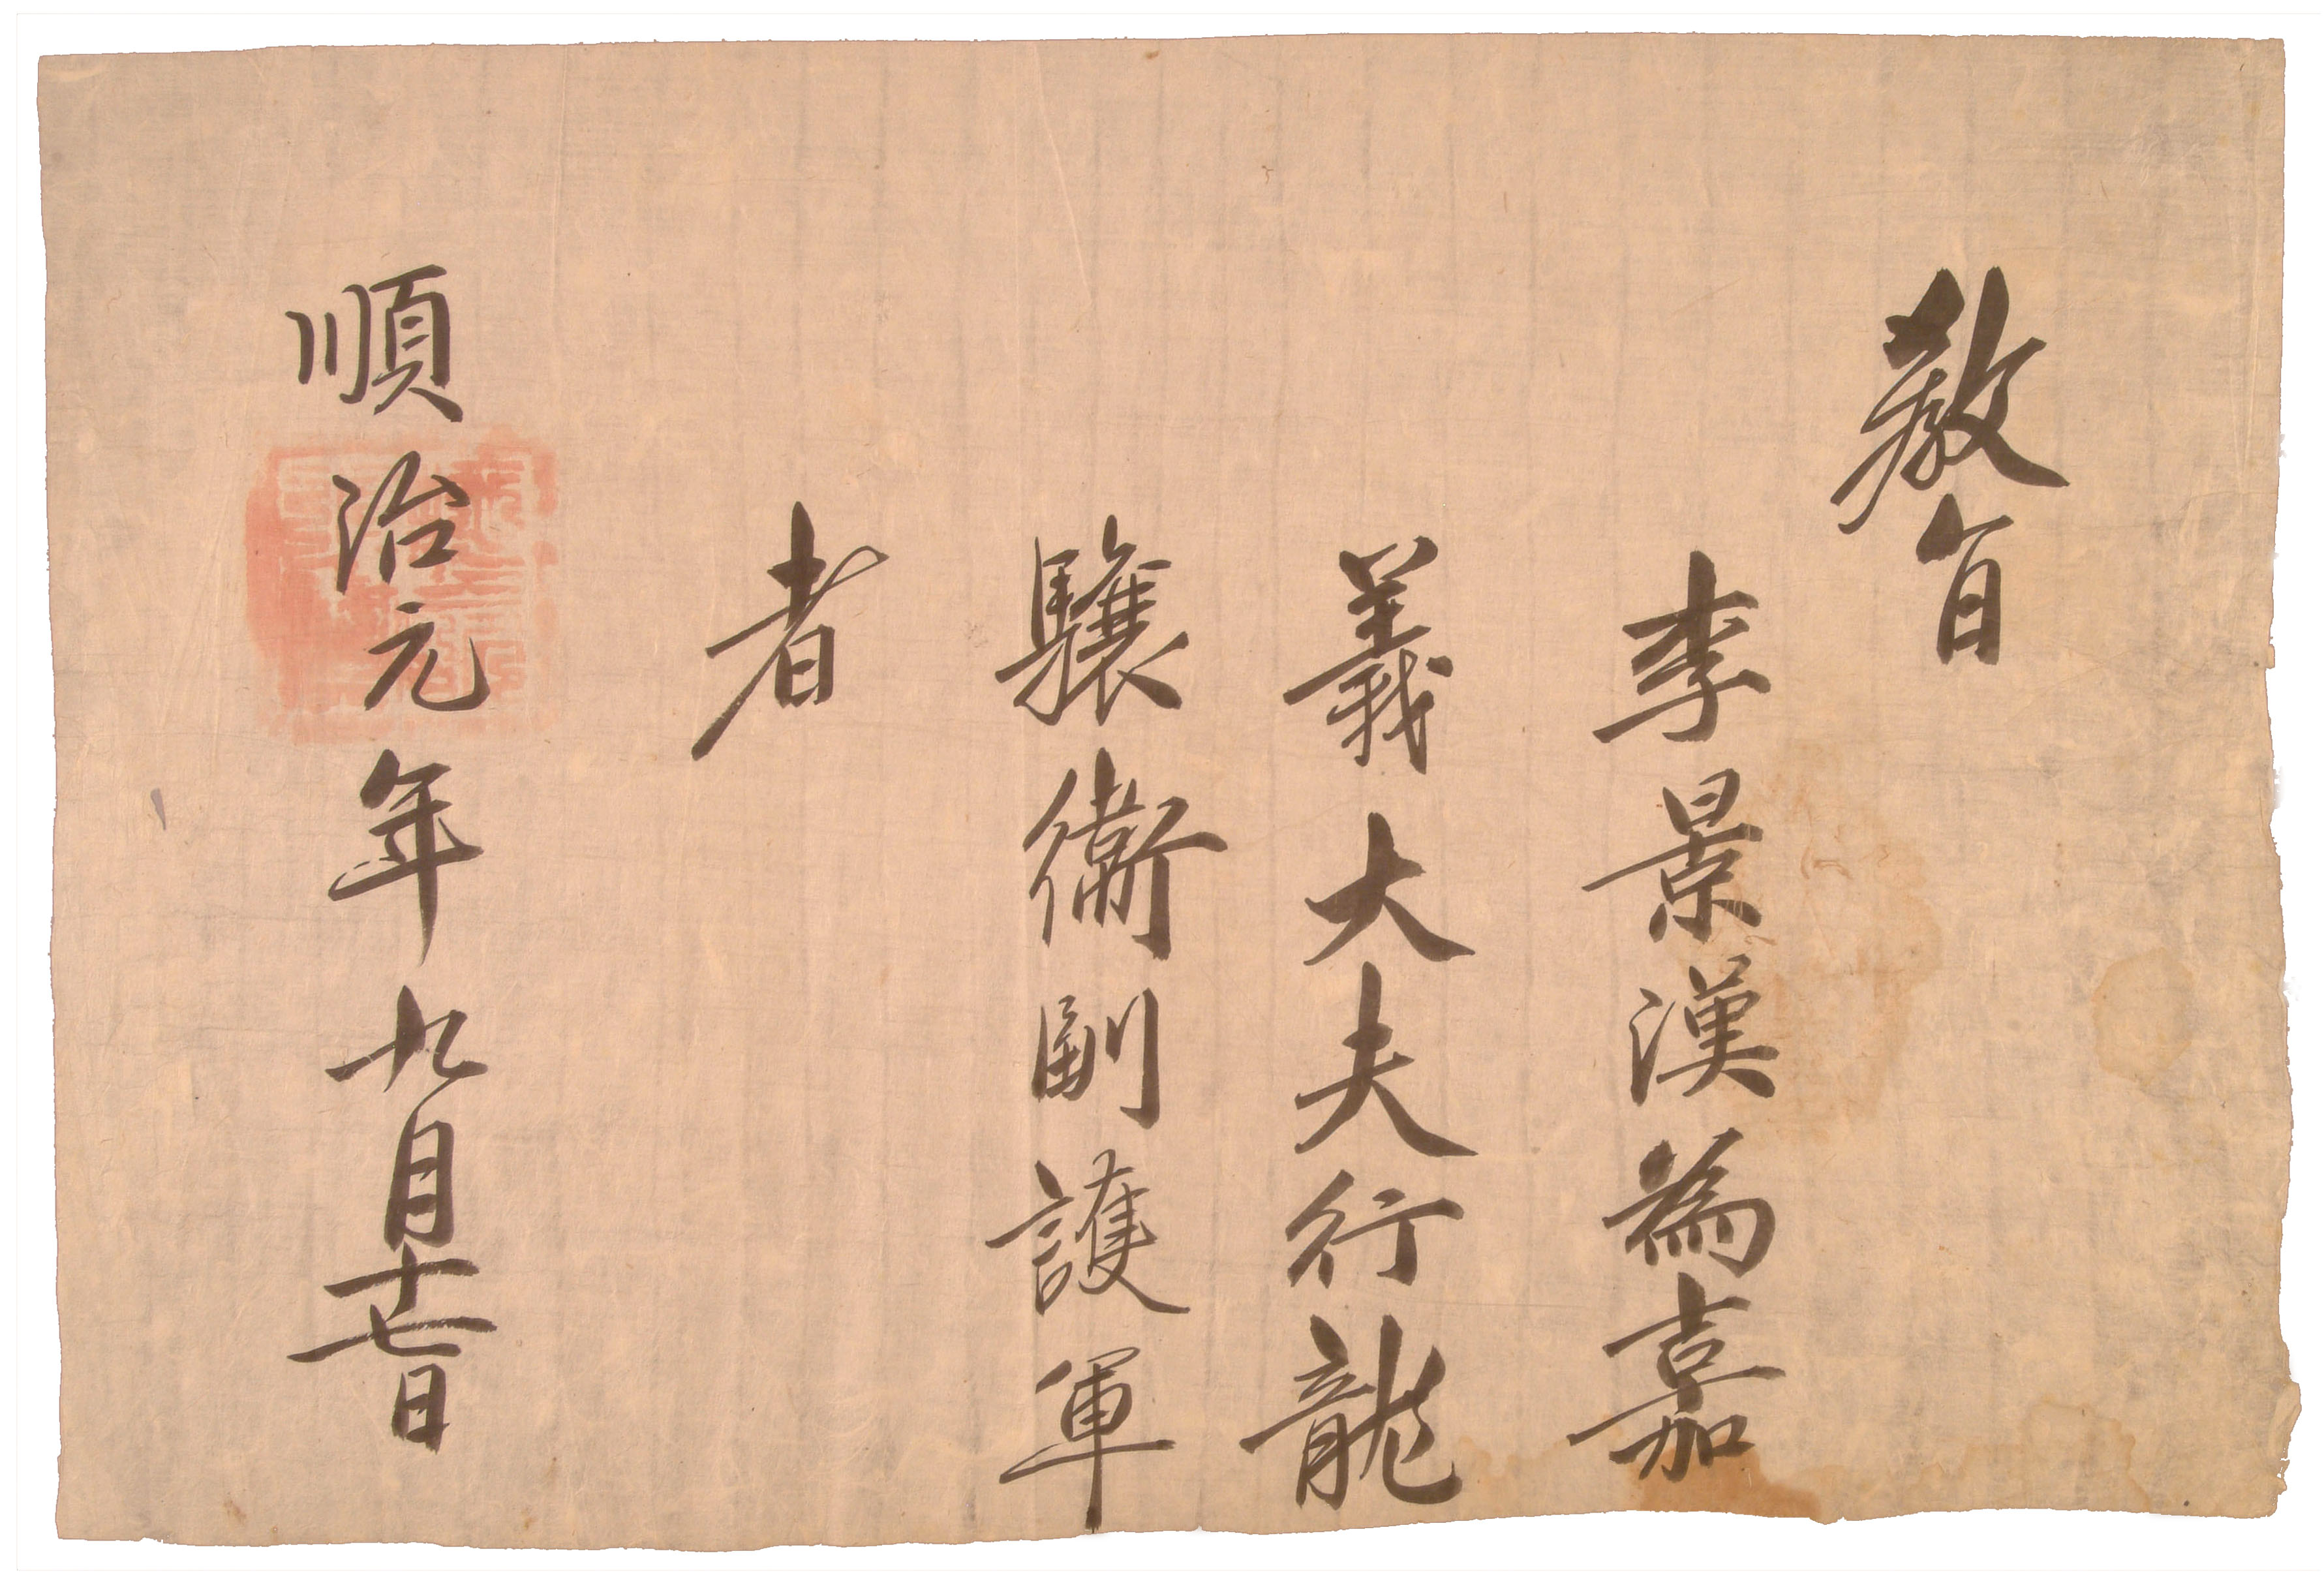 教旨
李景漢為嘉
義大夫行龍
驤衛副護軍
者
順治元年九月十七日